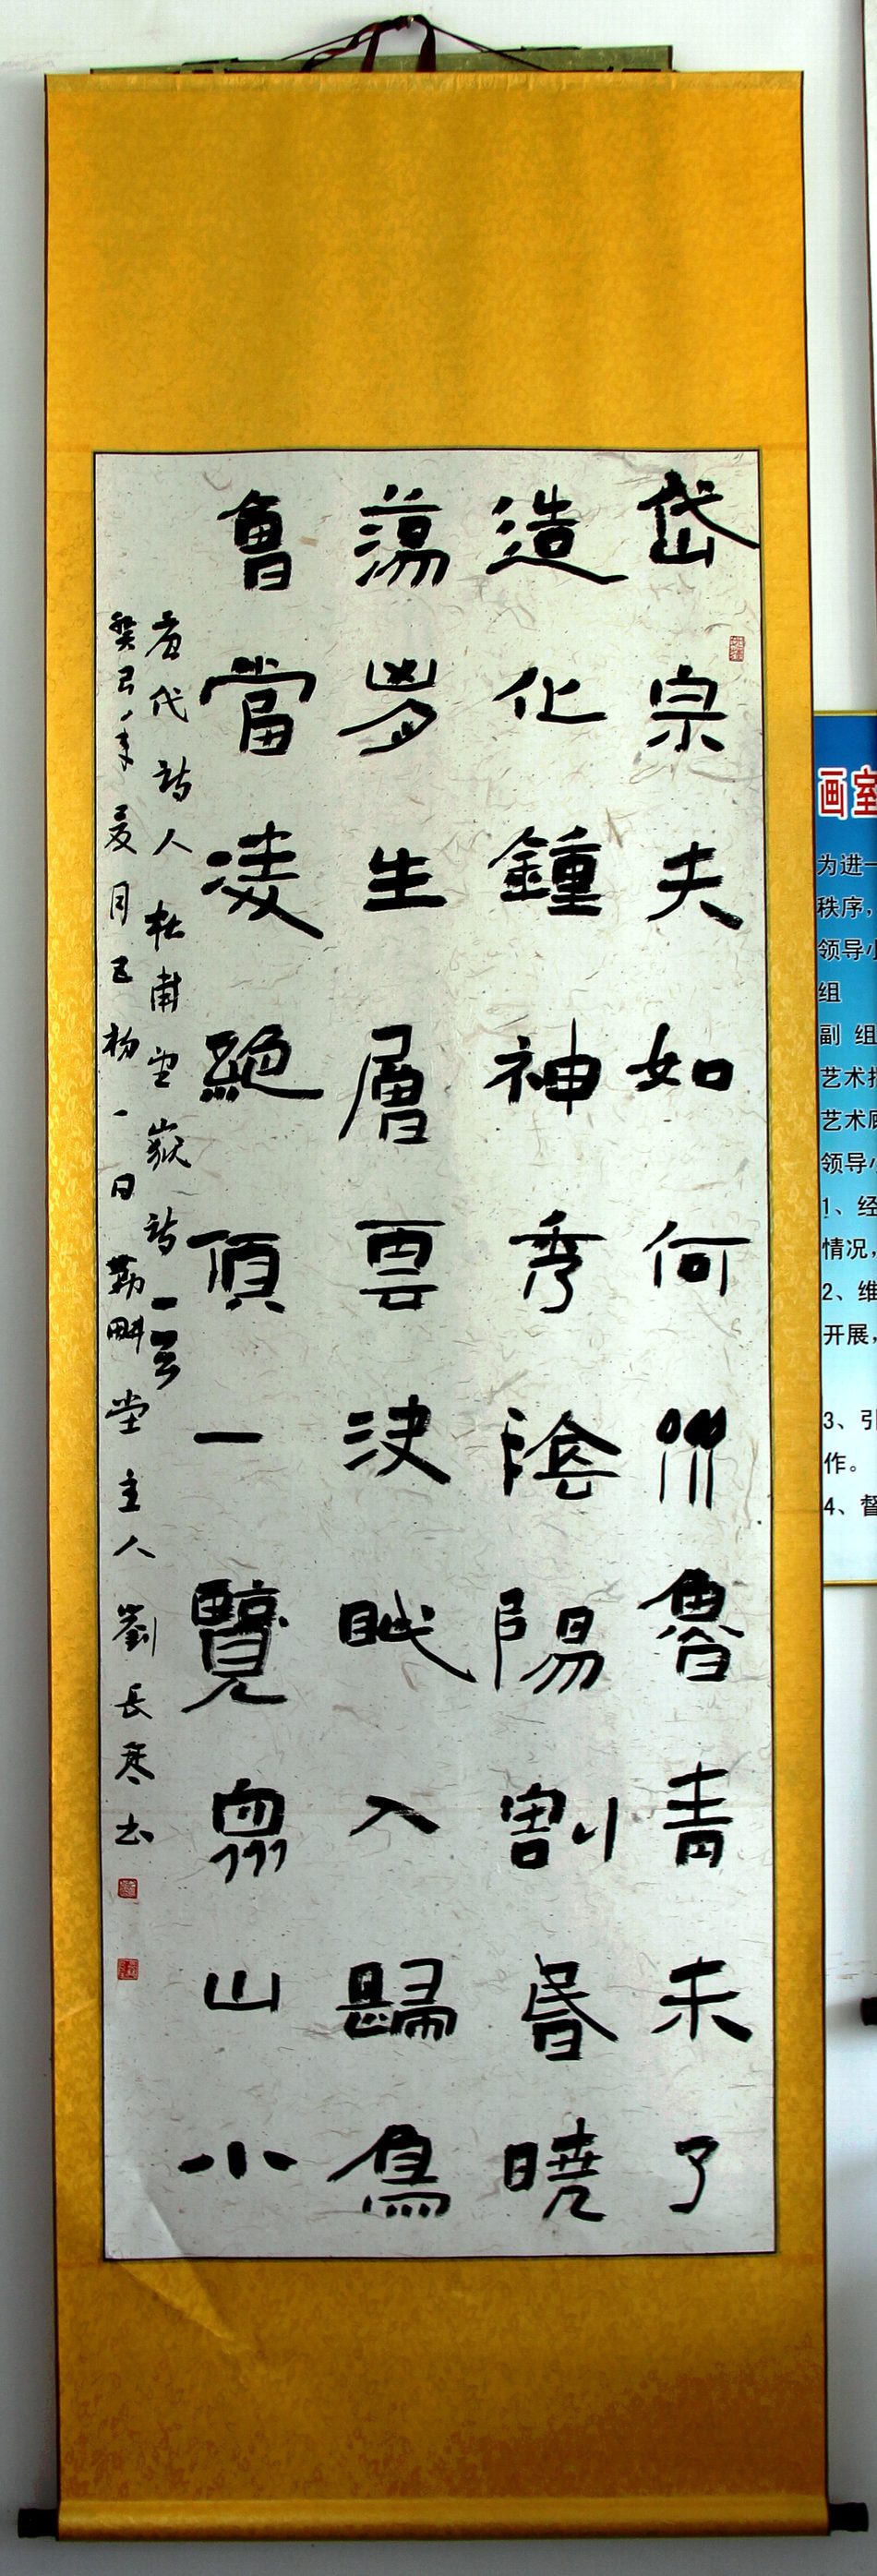 岱宗夫如何齊魯青未了
造化鍾神秀陰陽割昏曉
蕩胷生層雲決眦入歸鳥
會當凌絕頂一覽眾山小
唐代詩人杜甫望嶽詩一首
癸巳年夏月初一日堂主人劉長書
画室
为进一
秩序，
领导小
组
副 组
艺术指
艺术顾
领导小
1、经
情况，
2、维
开展，
3、引
作。
4、督